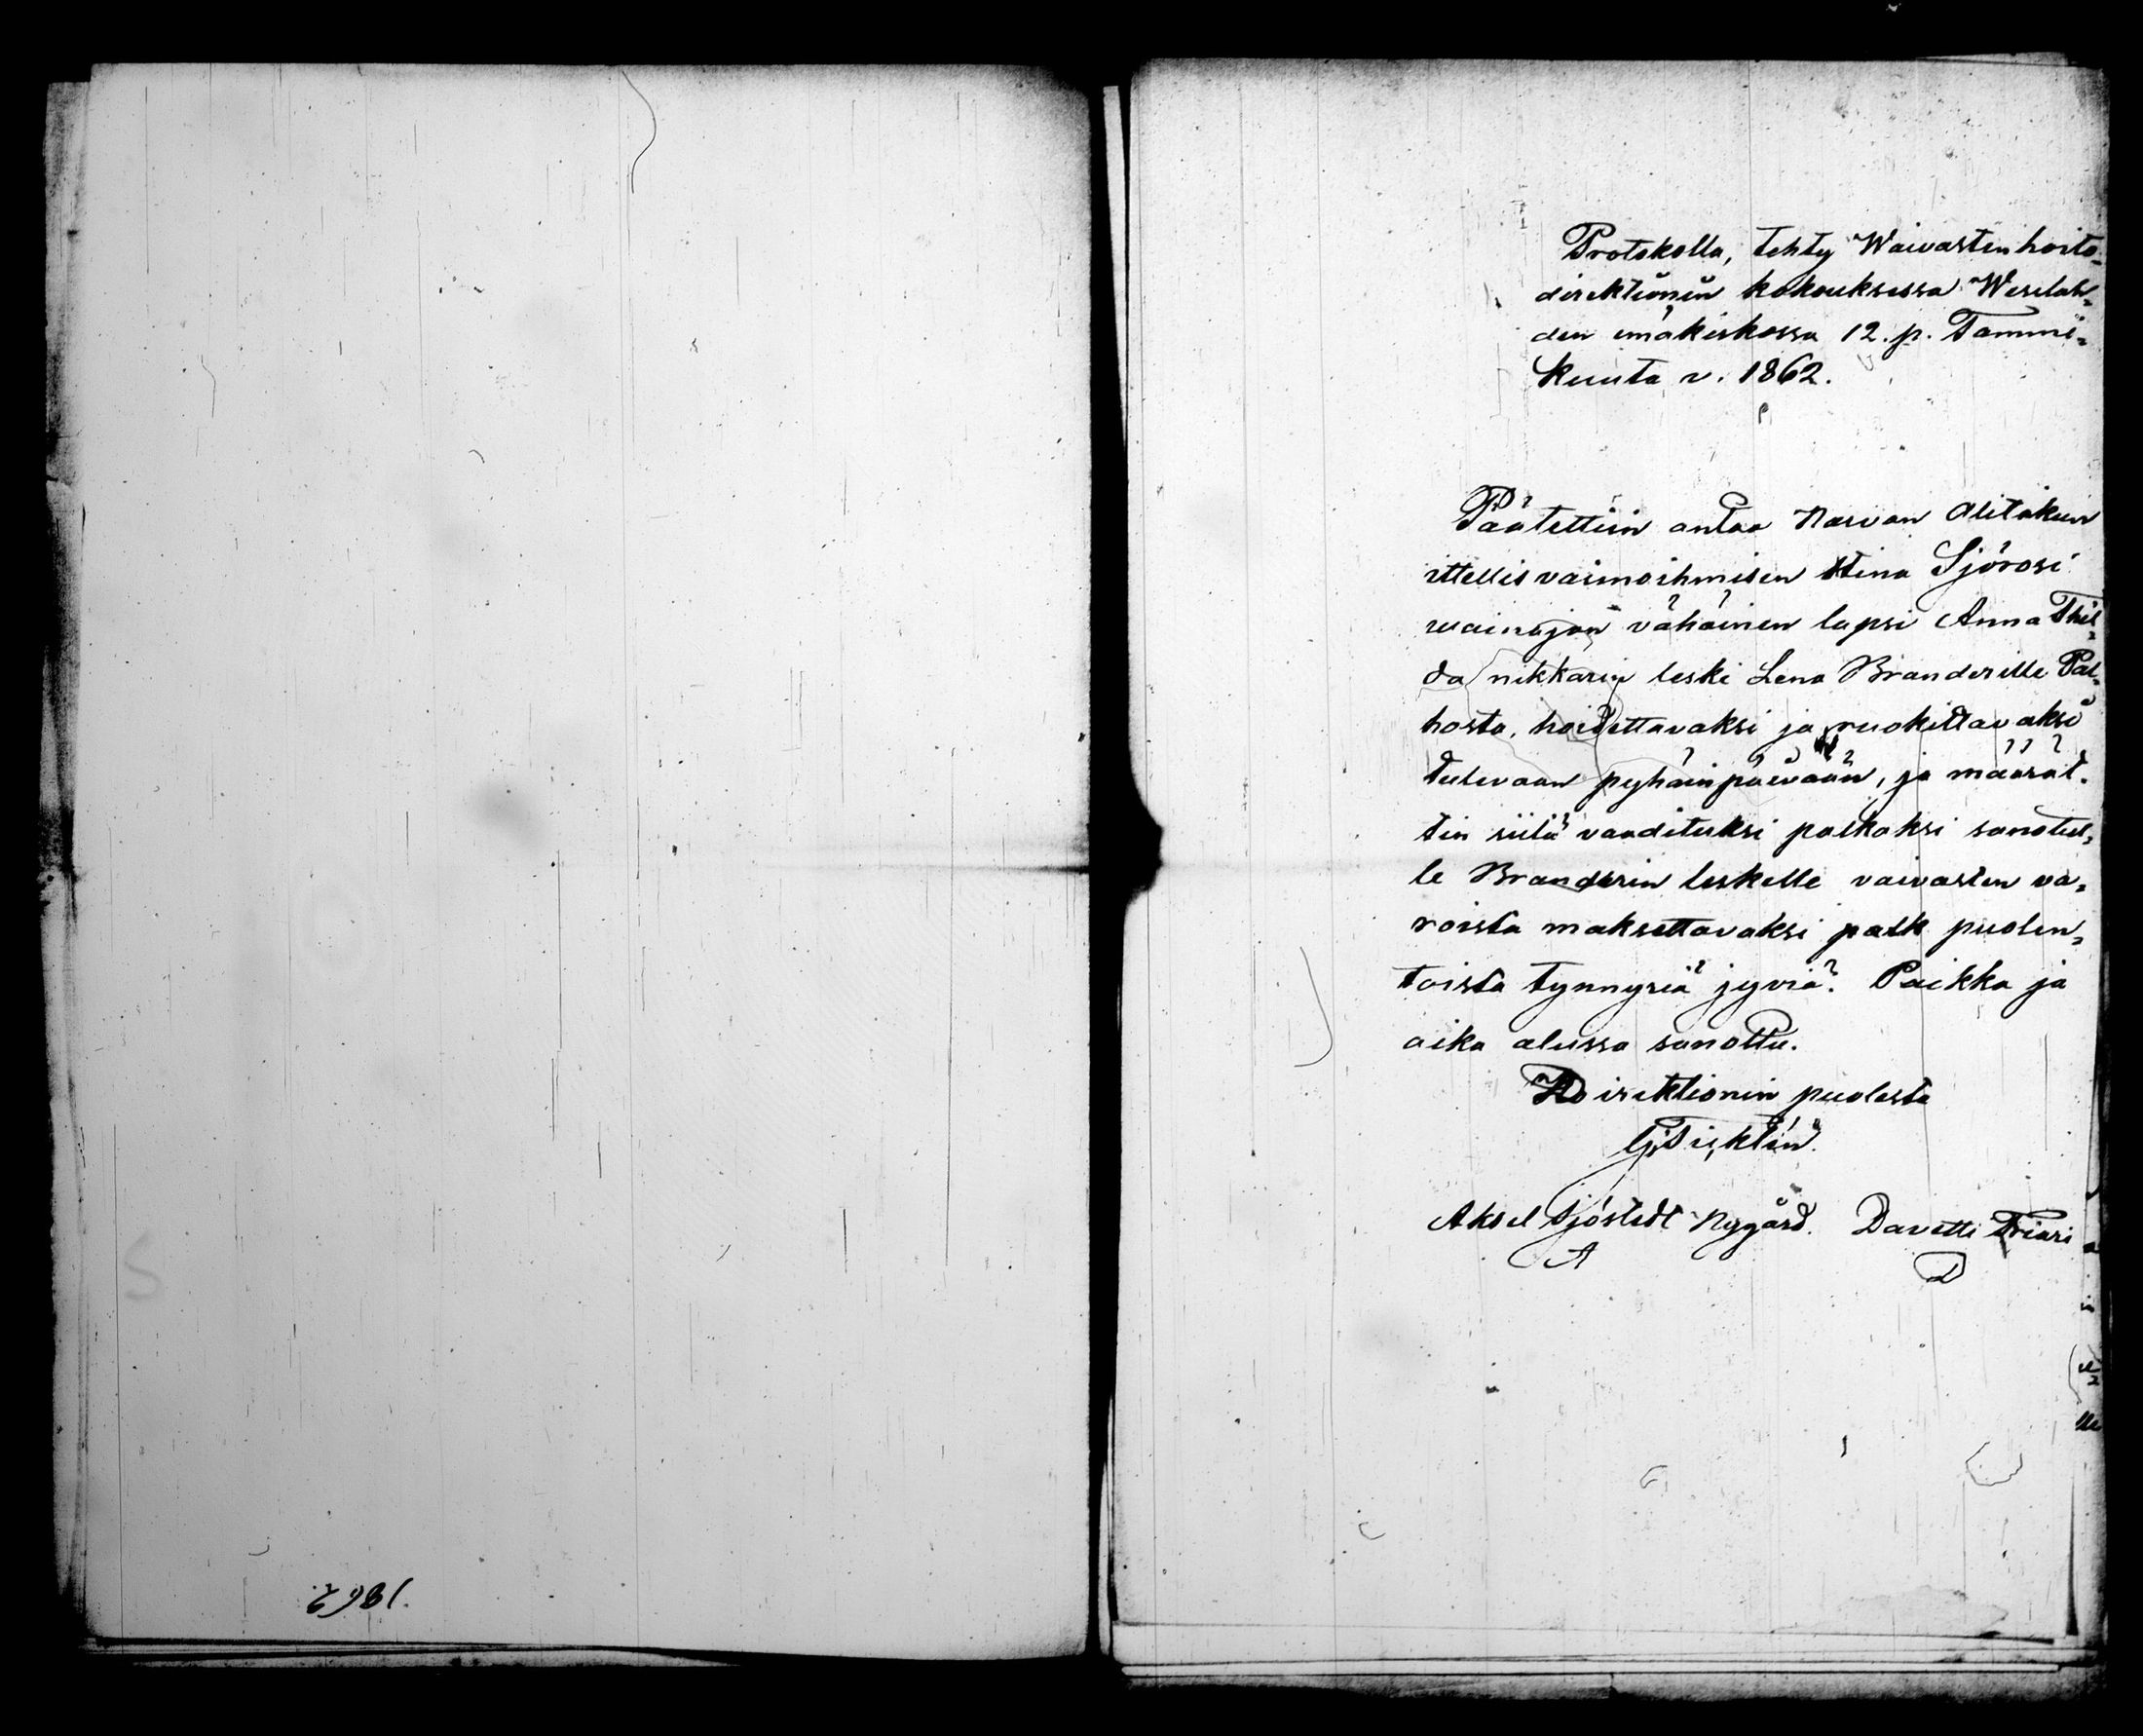 1862.
Protokolla, tehty Waivastenhoito-
direktionin kokouksessa Wesilah-
den emäkirkossa 12. p. Tammi-
kuuta v. 1862.
Päätettiin antaa Narvan alitakun
ittellisvaimoihmisen Stina Sjörosi
vainajan vähäinen lapsi Anna Thil-
da nikkarin leski Lena Branderille Pal-
hosta, hoidettavaksi ja ruokittavaksi
tulevaan pyhäinpäivään, ja määrät-
tin siitä vaadituksi palkaksi sanotul-
le Branderin leskelle vaivasten va-
roista maksettavaksi palk puolen-
toista tynnyriä jyviä. Paikka ja
aika alussa sanottu.
Direktionin puolesta
Aksel Sjöstedt Nygård. Davetti Friari
A D